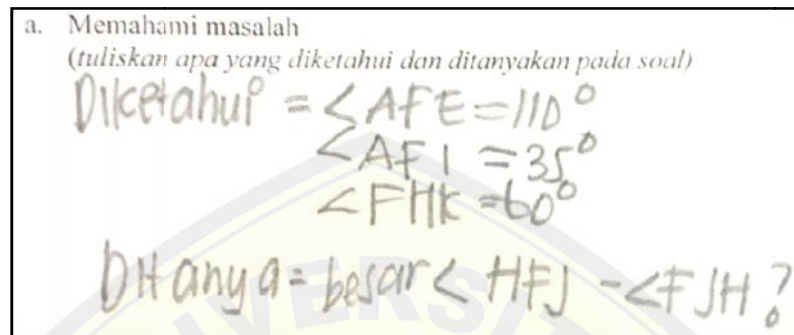 a. Memahami masalah
(tuliskan apa yang diketahui dan ditanyakan pada soal)
Diketahui = <AFE = 110°
<AFI = 35°
<FHK = 60°
Ditanya = besar < HFJ - <FJH?